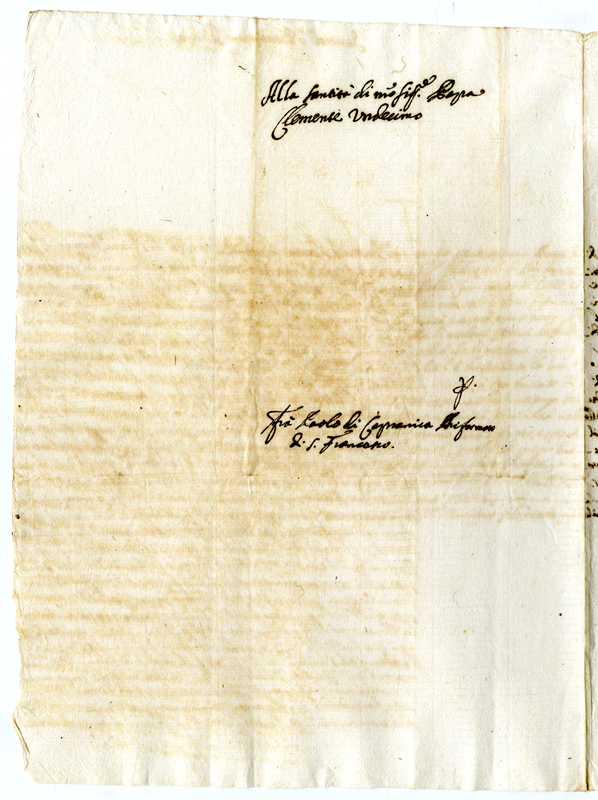 Alla Santità di nr̃o Sig.re Papa
Clemente Undecimo
P.
Frà Paolo di Capranica Riformato
di S. Francesco.